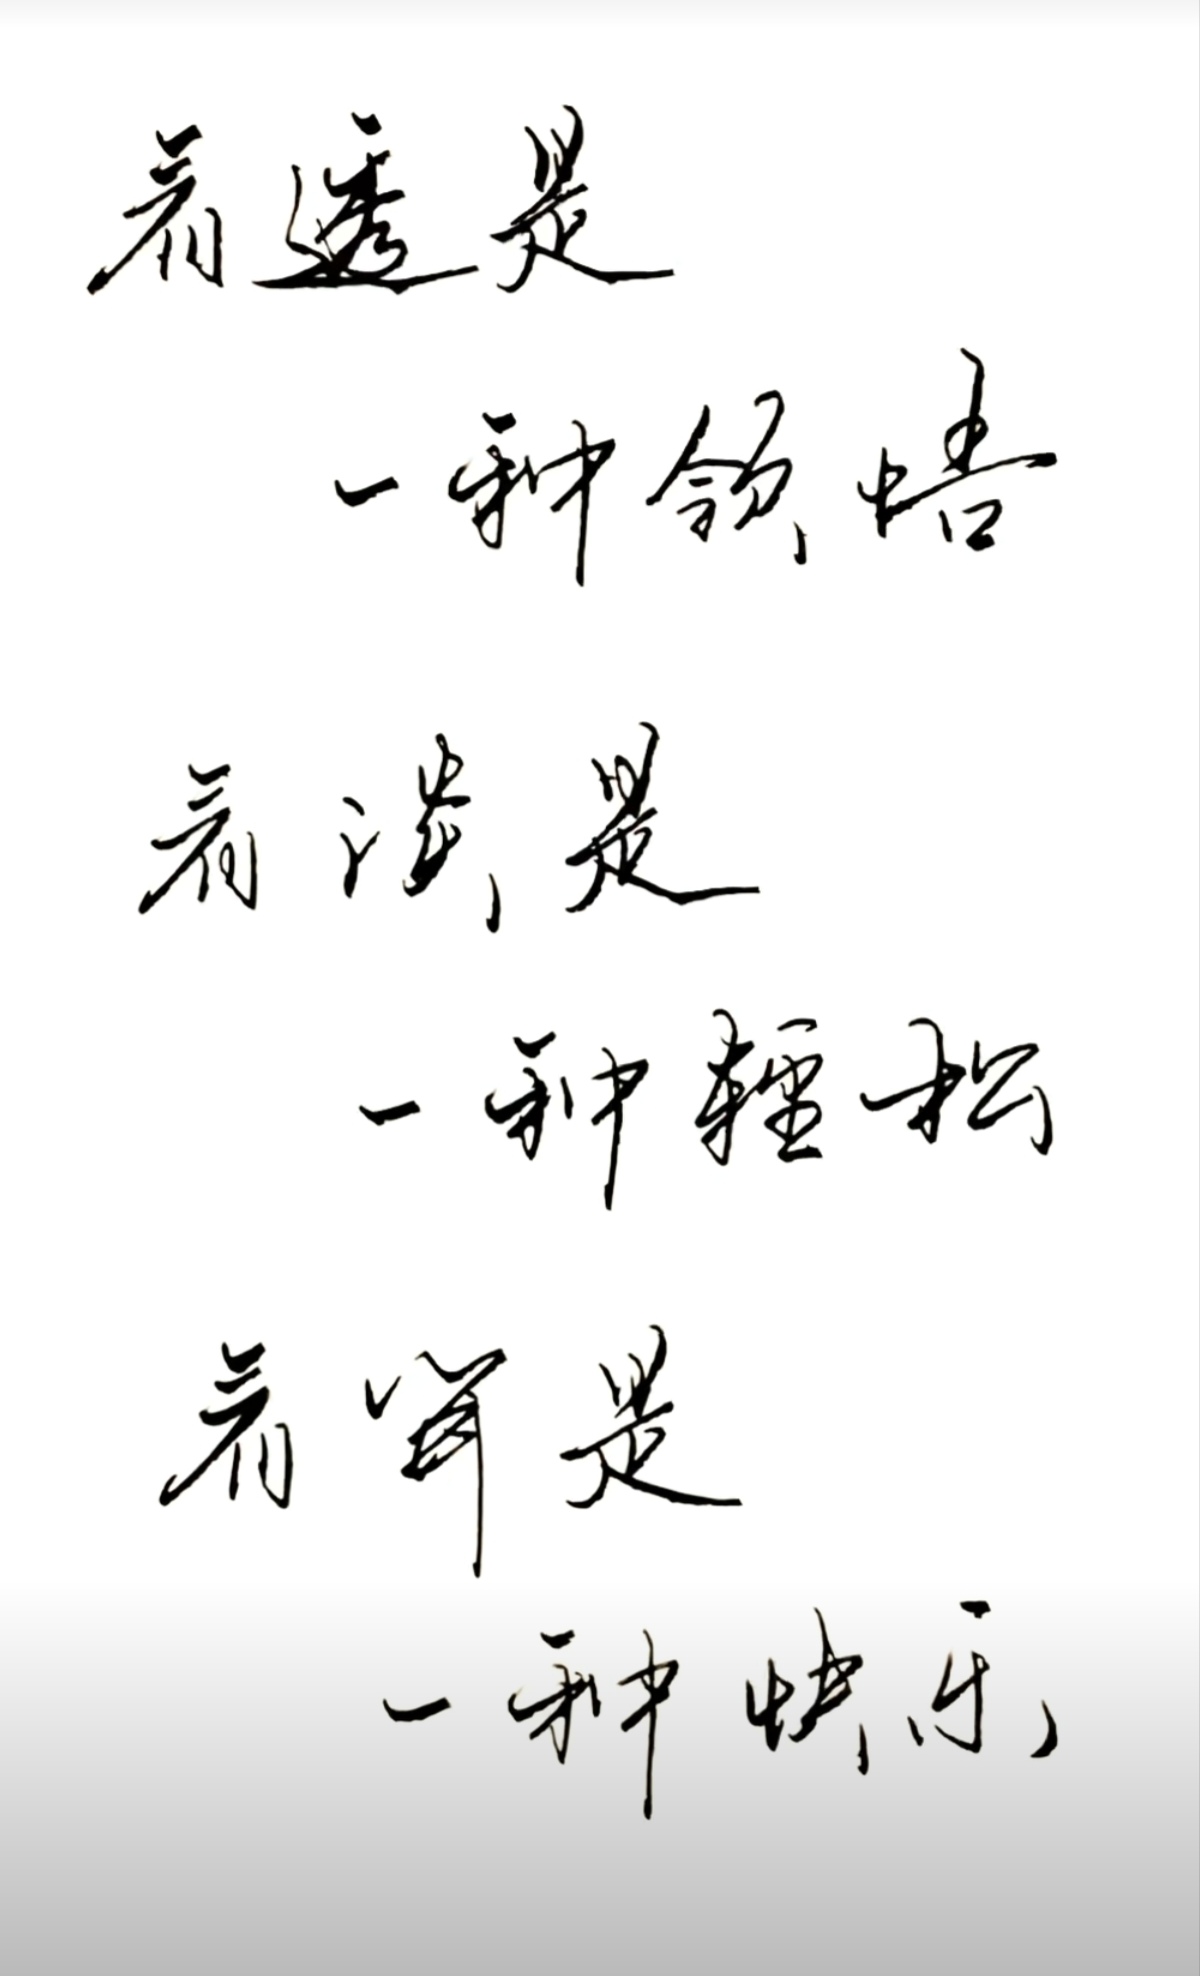 看透是
一种领悟
看淡是
一种輕松
看穿是
一种快乐